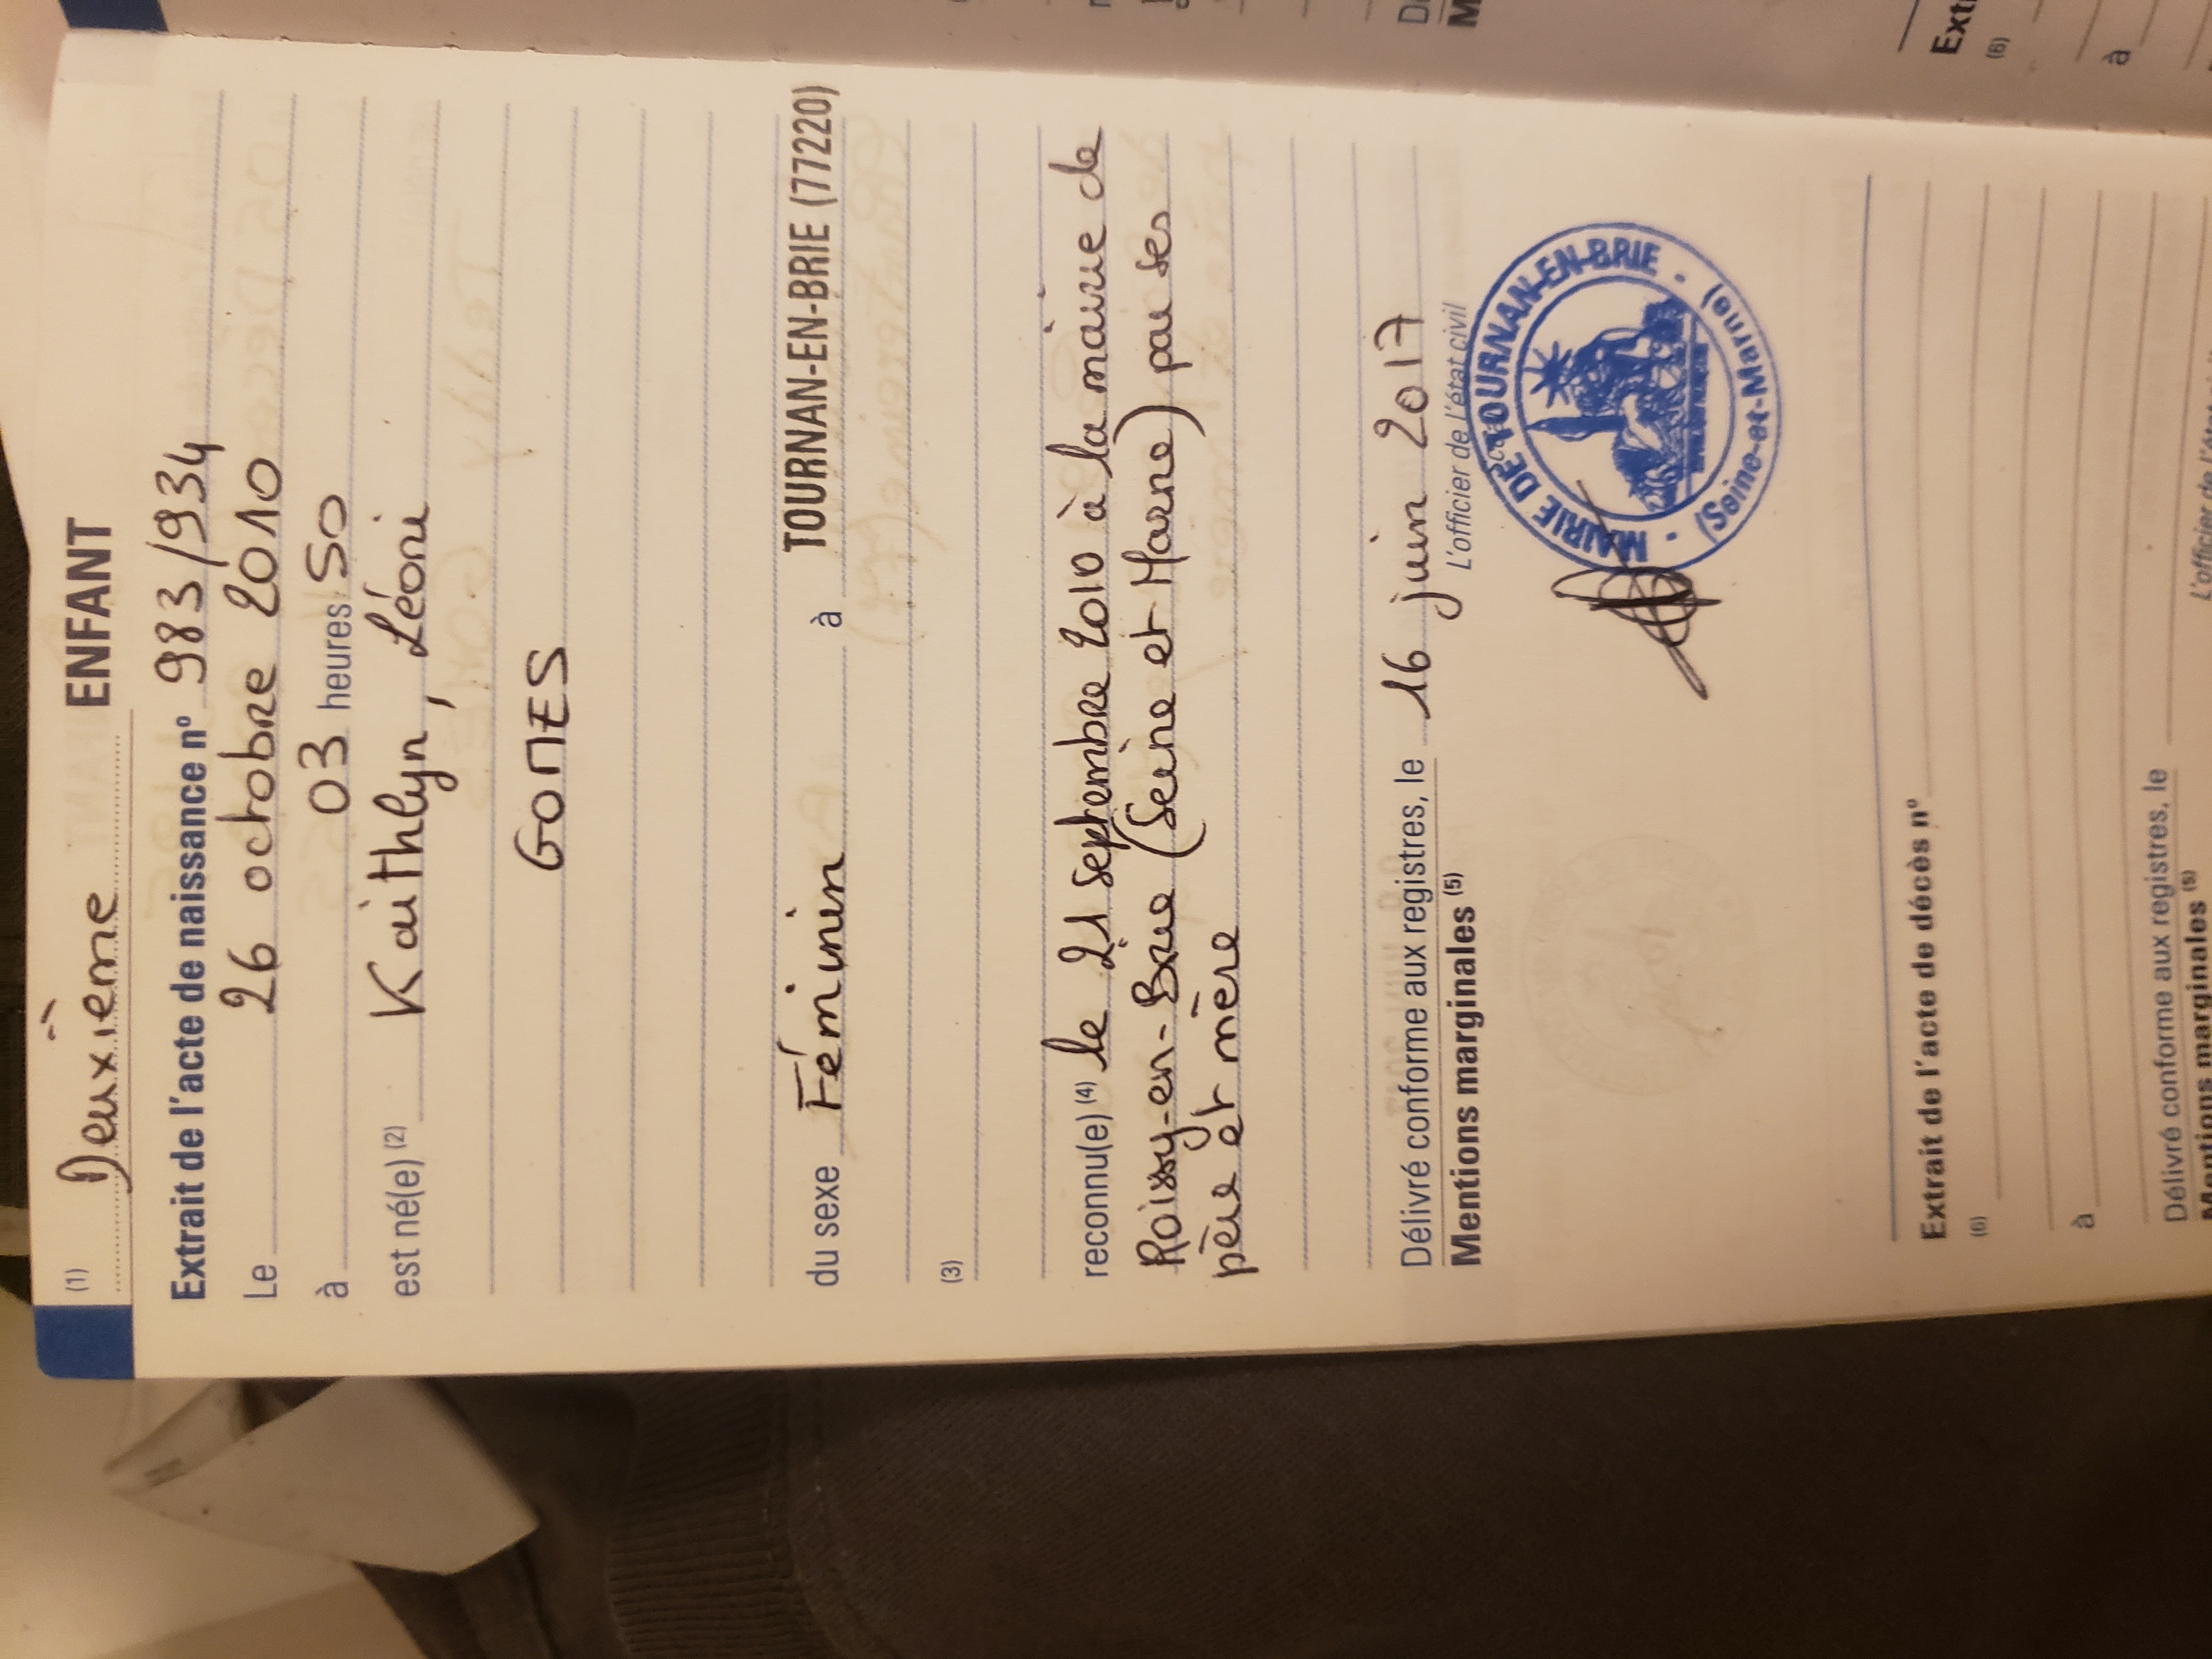 (1) Deuxième ENFANT
Extrait de l'acte de naissance nº 983/934
Le 26 octobre 2010
à 03 heures 50
est né(e) (2) Kaithlyn, Léoni
GOMES
du sexe Féminin à TOURNAN-EN-BRIE (77220)
(3)
reconnu(e) (4) le 21 septembre 2010 à la mairie de
Roissy-en-Brie (Seine et Marne) par ses
père et mère
Délivré conforme aux registres, le 16 juin 2017
Mentions marginales (5)
L'officier de l'état civil
MAIRIE DE TOURNAN-EN-BRIE - (Seine-et-Marne) -
Extrait de l'acte de décès nº
(6)
à
Délivré conforme aux registres, le
Mentions marginales (5)
L'officier de l'éta
Extr
(6)
à